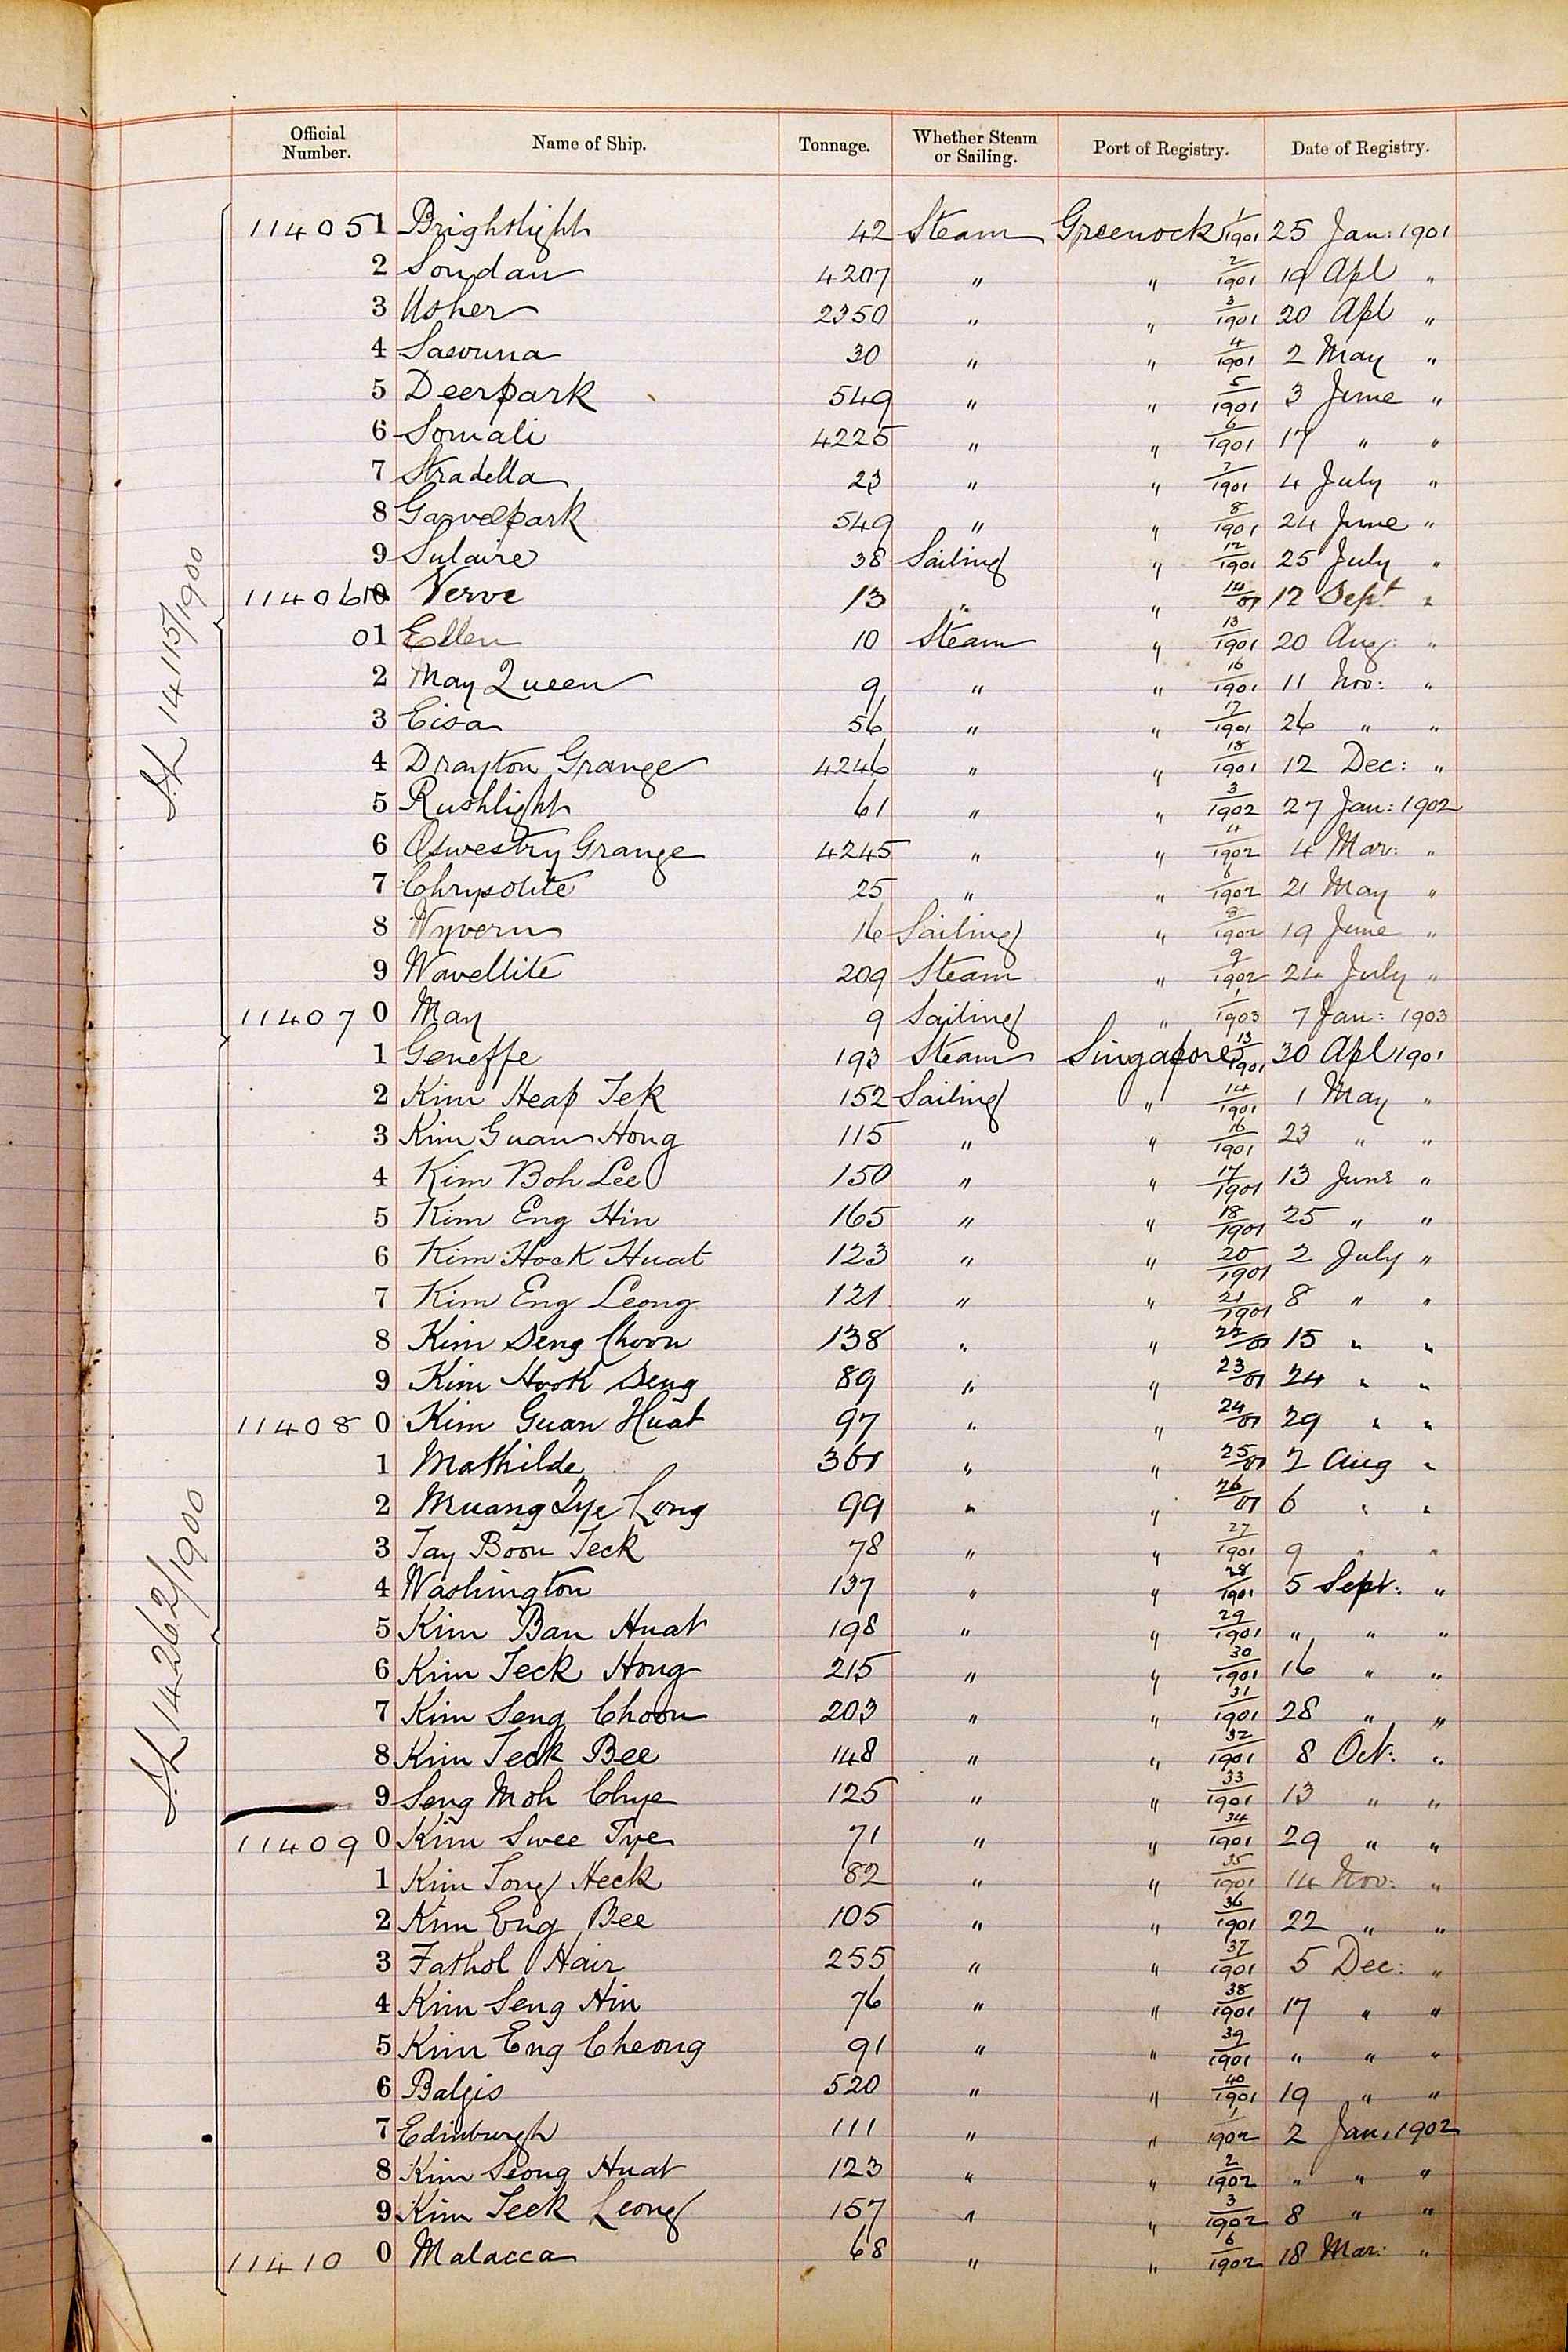 Official Number. Name of Ship. Tonnage. Whether Steam or Sailing. Port of Registry. Date of Registry.
114051 Brightlight 42 Steam Greenock 1/1901 25 Jan: 1901
2 Soudan 4207 " " 2/1901 19 Apl "
3 Usher 2350 " " 3/1901 20 Apl "
4 30 " " 4/1901 2 May "
5 Deerpark 549 " " 5/1901 3 June "
6 Somali 4225 " " 6/1901 17 " "
7 Stradella 23 " " 7/1901 4 July "
8 Garvelpark 549 " " 8/1901 24 June "
9 Sulaire 38 Sailing " 12/1901 25 July "
114060 Verve 13 " " 14/01 12 Sept "
01 Ellen 10 Steam " 13/1901 20 Aug: "
2 May Queen 9 " " 16/1901 11 Nov: "
3 Eisa 56 " " 17/1901 26 " "
4 Drayton Grange 4246 " " 18/1901 12 Dec: "
5 Rushlight 61 " " 3/1902 27 Jan: 1902
6 Oswestry Grange 4245 " " 4/1902 4 Mar: "
7 Chrysolite 25 " " 6/1902 21 May "
8 Wyvern 16 Sailing " 8/1902 19 June "
9 Wavellite 209 Steam " 9/1902 24 July "
11407 0 May 9 Sailing " 1/1903 7 Jan: 1903
SL 14115/1900
1 Geneffe 193 Steam Singapore 13/1901 30 Apl 1901
2 Kim Heap Tek 152 Sailing " 14/1901 1 May "
3 Kim Guan Hong 115 " " 16/1901 23 " "
4 Kim Boh Lee 150 " " 17/1901 13 June "
5 Kim Eng Hin 165 " " 18/1901 25 " "
6 Kim Hock Huat 123 " " 20/1901 2 July "
7 Kim Eng Leong 121 " " 21/1901 8 " "
8 Kim Seng Choon 138 " " 22/01 15 " "
9 Kim Hock Seng 89 " " 23/01 24 " "
11408 0 Kim Guan Huat 97 " " 24/01 29 " "
1 Mathilde " " 25/01 2 Aug "
2 Muang Lye Long 99 " " 26/01 6 " "
3 Tay Boon Teck 78 " " 27/1901 9 " "
4 Washington 137 " " 28/1901 5 Sept: "
5 Kim Ban Huat 198 " " 29/1901 " " "
6 Kim Teck Hong 215 " " 30/1901 16 " "
7 Kim Seng Choon 203 " " 31/1901 28 " "
8 Kim Teck Bee 148 " " 32/1901 8 Oct: "
9 Seng Moh Chye 125 " " 33/1901 13 " "
11409 0 Kim Swee Tye 71 " " 34/1901 29 " "
1 Kim Tong Heck 82 " " 35/1901 14 Nov: "
2 Kim Eng Bee 105 " " 36/1901 22 " "
3 Fathol Hair 255 " " 37/1901 5 Dec: "
4 Kim Seng Hin 76 " " 38/1901 17 " "
5 Kim Eng Cheong 91 " " 39/1901 " " "
6 Balgis 520 " " 40/1901 19 " "
7 Edinburgh 111 " " 1/1902 2 Jan, 1902
8 Kim Seong Huat 123 " " 2/1902 " " "
9 Kim Teck Leong 157 " " 3/1902 8 " "
11410 0 Malacca 68 " " 6/1902 18 Mar: "
SL 14262/1900